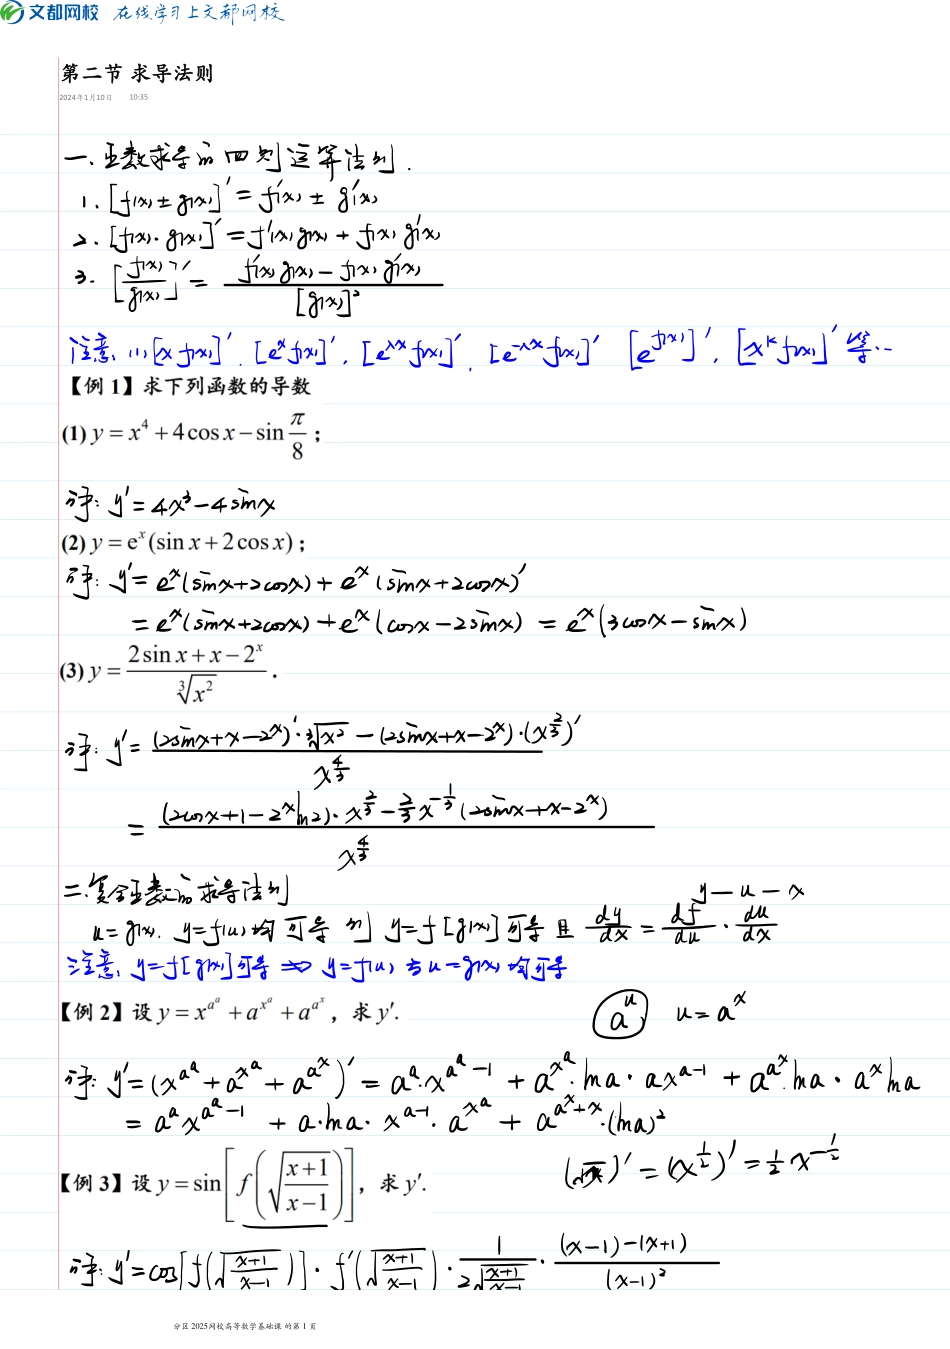 文都网校 在线学习上文都网校
第二节 求导法则
2024年1月10日 10:35
一、函数求导的四则运算法则.
1. [f(x)±g(x)]′=f′(x)±g′(x)
2. [f(x)·g(x)]′=f′(x)g(x)+f(x)g′(x)
3. [f(x)/g(x)]′=(f′(x)g(x)-f(x)g′(x))/[g(x)]²
注意: (1) [x f(x)]′. [e^x f(x)]′, [e^{λx} f(x)]′, [e^{-λx} f(x)]′ [e^{f(x)}]′, [x^k f(x)]′等…
【例 1】求下列函数的导数
(1) y = x⁴ + 4cos x − sin π/8 ;
解: y′=4x³-4sinx
(2) y = e^x (sin x + 2cos x) ;
解: y′=e^x(sinx+2cosx)+e^x(sinx+2cosx)′
=e^x(sinx+2cosx)+e^x(cosx-2sinx)=e^x(3cosx-sinx)
(3) y = (2sin x + x − 2^x)/∛(x²) .
解: y′=((2sinx+x-2^x)′·∛(x²)-(2sinx+x-2^x)·(x^{2/3})′)/x^{4/3}
=((2cosx+1-2^x ln2)·x^{2/3}-2/3 x^{-1/3}(2sinx+x-2^x))/x^{4/3}
二.复合函数的求导法则
y—u—x
u=g(x). y=f(u)均可导 则 y=f[g(x)]可导且 dy/dx=df/du·du/dx
注意: y=f[g(x)]可导 ⇏ y=f(u)与u=g(x)均可导
【例 2】设 y = x^{a^a} + a^{x^a} + a^{a^x} , 求 y′.
a^u u=a^x
解: y′=(x^{a^a}+a^{x^a}+a^{a^x})′=a^a·x^{a^a-1}+a^{x^a}·lna·ax^{a-1}+a^{a^x}·lna·a^x lna
=a^a x^{a^a-1}+a·lna·x^{a-1}·a^{x^a}+a^{a^x+x}·(lna)²
(√x)′=(x^{1/2})′=1/2 x^{-1/2}
【例 3】设 y = sin[f(√((x+1)/(x−1)))] , 求 y′.
解: y′=cos[f(√((x+1)/(x-1)))]·f′(√((x+1)/(x-1)))·1/(2√((x+1)/(x-1)))·((x-1)-(x+1))/(x-1)²
分区 2025网校高等数学基础课 的第 1 页